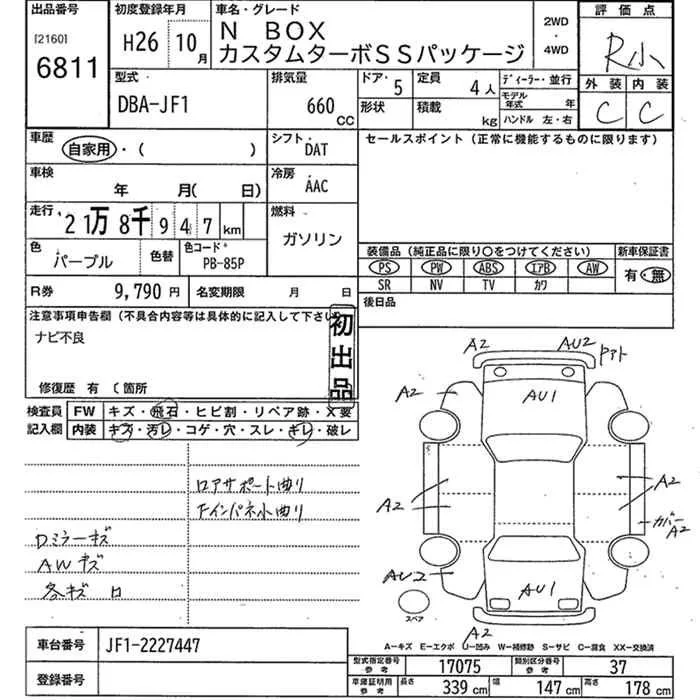 出品番号 初度登録年月 車名・グレード 2WD・4WD 評価点
[2160] 6811 H26 10月 N BOX カスタムターボSSパッケージ R小
外装 内装
C C
型式 排気量 ドア・ 5 定員 4人 ディーラー・並行
DBA-JF1 660cc 形状 積載 kg モデル年式 年
ハンドル 左・右
車歴 自家用・( ) シフト・ DAT セールスポイント(正常に機能するものに限ります)
車検 年 月(日) 冷房 AAC
走行・ 21万8千947km 燃料 ガソリン
色 パープル 色替 色コード* PB-85P
装備品(純正品に限り○をつけてください) 新車保証書
PS PW ABS エアB AW 有・無
SR NV TV カワ
R券 9,790円 名変期限 月 日 後日品
注意事項申告欄(不具合内容等は具体的に記入して下さい)
ナビ不良
初出品
修復歴 有 〔箇所
検査員記入欄 FW キズ・飛石・ヒビ割・リペア跡・X要
内装 キズ・汚レ・コゲ・穴・スレ・キレ・破レ
ロアサポート曲り
Fインパネ小曲り
Dミラーキズ
AWキズ
各キズ
A2 AU2
A2 AU1
A2 A2
カバー A2
AU2 AU1
A2
スペア
A-キズ E-エクボ U-凹み W-補修跡 S-サビ C-腐食 XX-交換済
車台番号 JF1-2227447
登録番号
型式指定番号参考 17075 類別区分番号参考 37
車庫証明用参考 長さ 339cm 幅 147cm 高さ 178cm